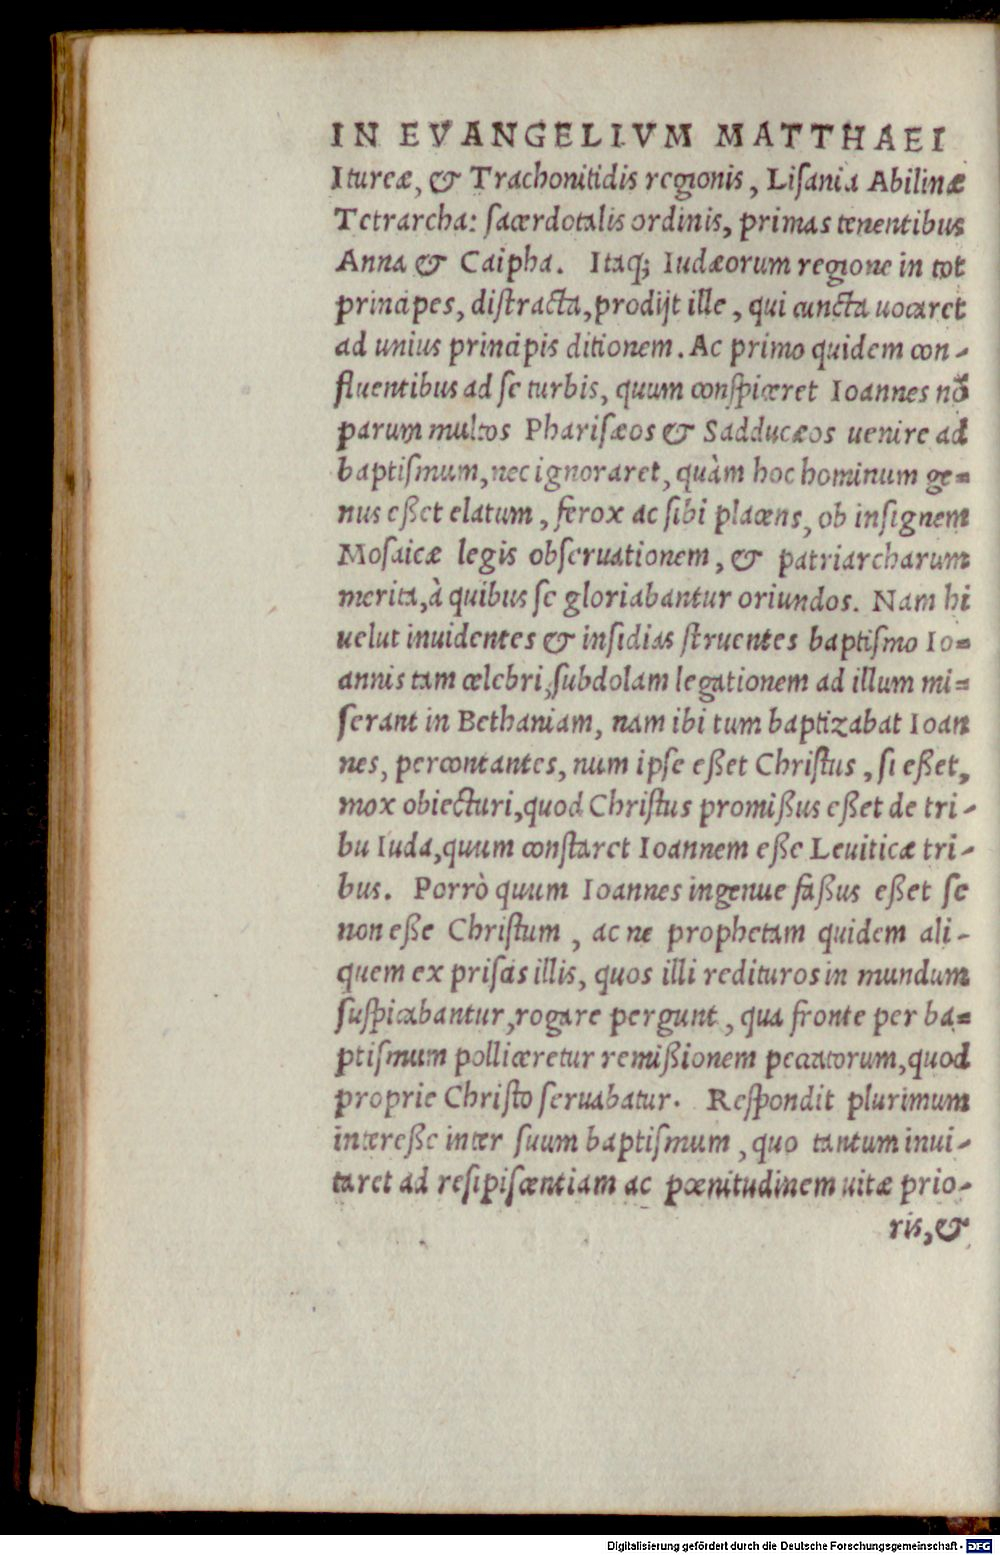 IN EVANGELIVM MATTHAEI
Itureæ, & Trachonitidis regionis, Liſania Abilinæ
Tetrarcha: ſacerdotalis ordinis, primas tenentibus
Anna & Caipha. Itaq; Iudæorum regione in tot
principes, diſtracta, prodijt ille, qui cuncta uocaret
ad unius principis ditionem. Ac primo quidem con-
fluentibus ad ſe turbis, quum conſpiceret Ioannes nõ
parum multos Phariſæos & Sadducæos uenire ad
baptiſmum, nec ignoraret, quàm hoc hominum ge-
nus eßet elatum, ferox ac ſibi placens, ob inſignem
Moſaicæ legis obſeruationem, & patriarcharum
merita, à quibus ſe gloriabantur oriundos. Nam hi
uelut inuidentes & inſidias ſtruentes baptiſmo Io-
annis tam celebri, ſubdolam legationem ad illum mi-
ſerant in Bethaniam, nam ibi tum baptizabat Ioan
nes, percontantes, num ipſe eßet Chriſtus, ſi eßet,
mox obiecturi, quod Chriſtus promißus eßet de tri-
bu Iuda, quum conſtaret Ioannem eße Leuiticæ tri-
bus. Porrò quum Ioannes ingenue faßus eßet ſe
non eße Chriſtum, ac ne prophetam quidem ali-
quem ex priſcis illis, quos illi redituros in mundum
ſuſpicabantur, rogare pergunt, qua fronte per ba-
ptiſmum polliceretur remißionem peccatorum, quod
proprie Chriſto ſeruabatur. Reſpondit plurimum
intereße inter ſuum baptiſmum, quo tantum inui-
taret ad reſipiſcentiam ac pœnitudinem uitæ prio-
ris, &
Digitalisierung gefördert durch die Deutsche Forschungsgemeinschaft - DFG